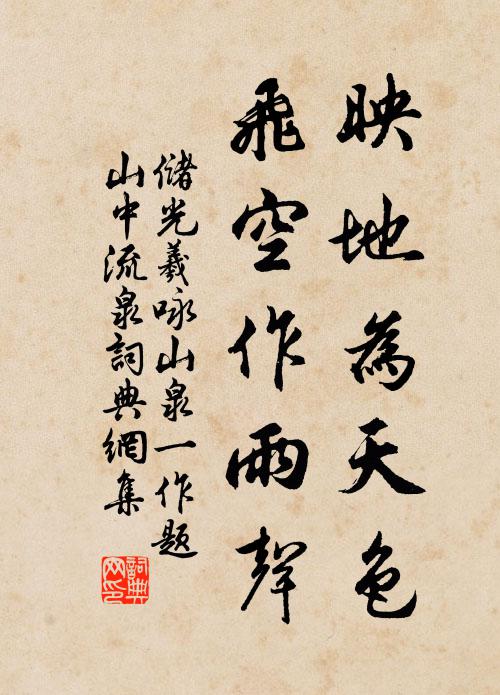 映地為天色
飛空作雨聲
儲光羲咏山泉一作題
山中流泉詞典網集
詞典
网印